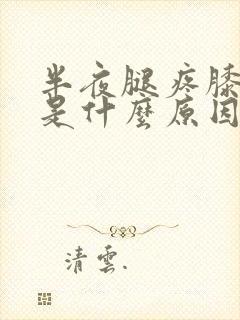 半夜腿疼膝
是什麼原因
清雲.